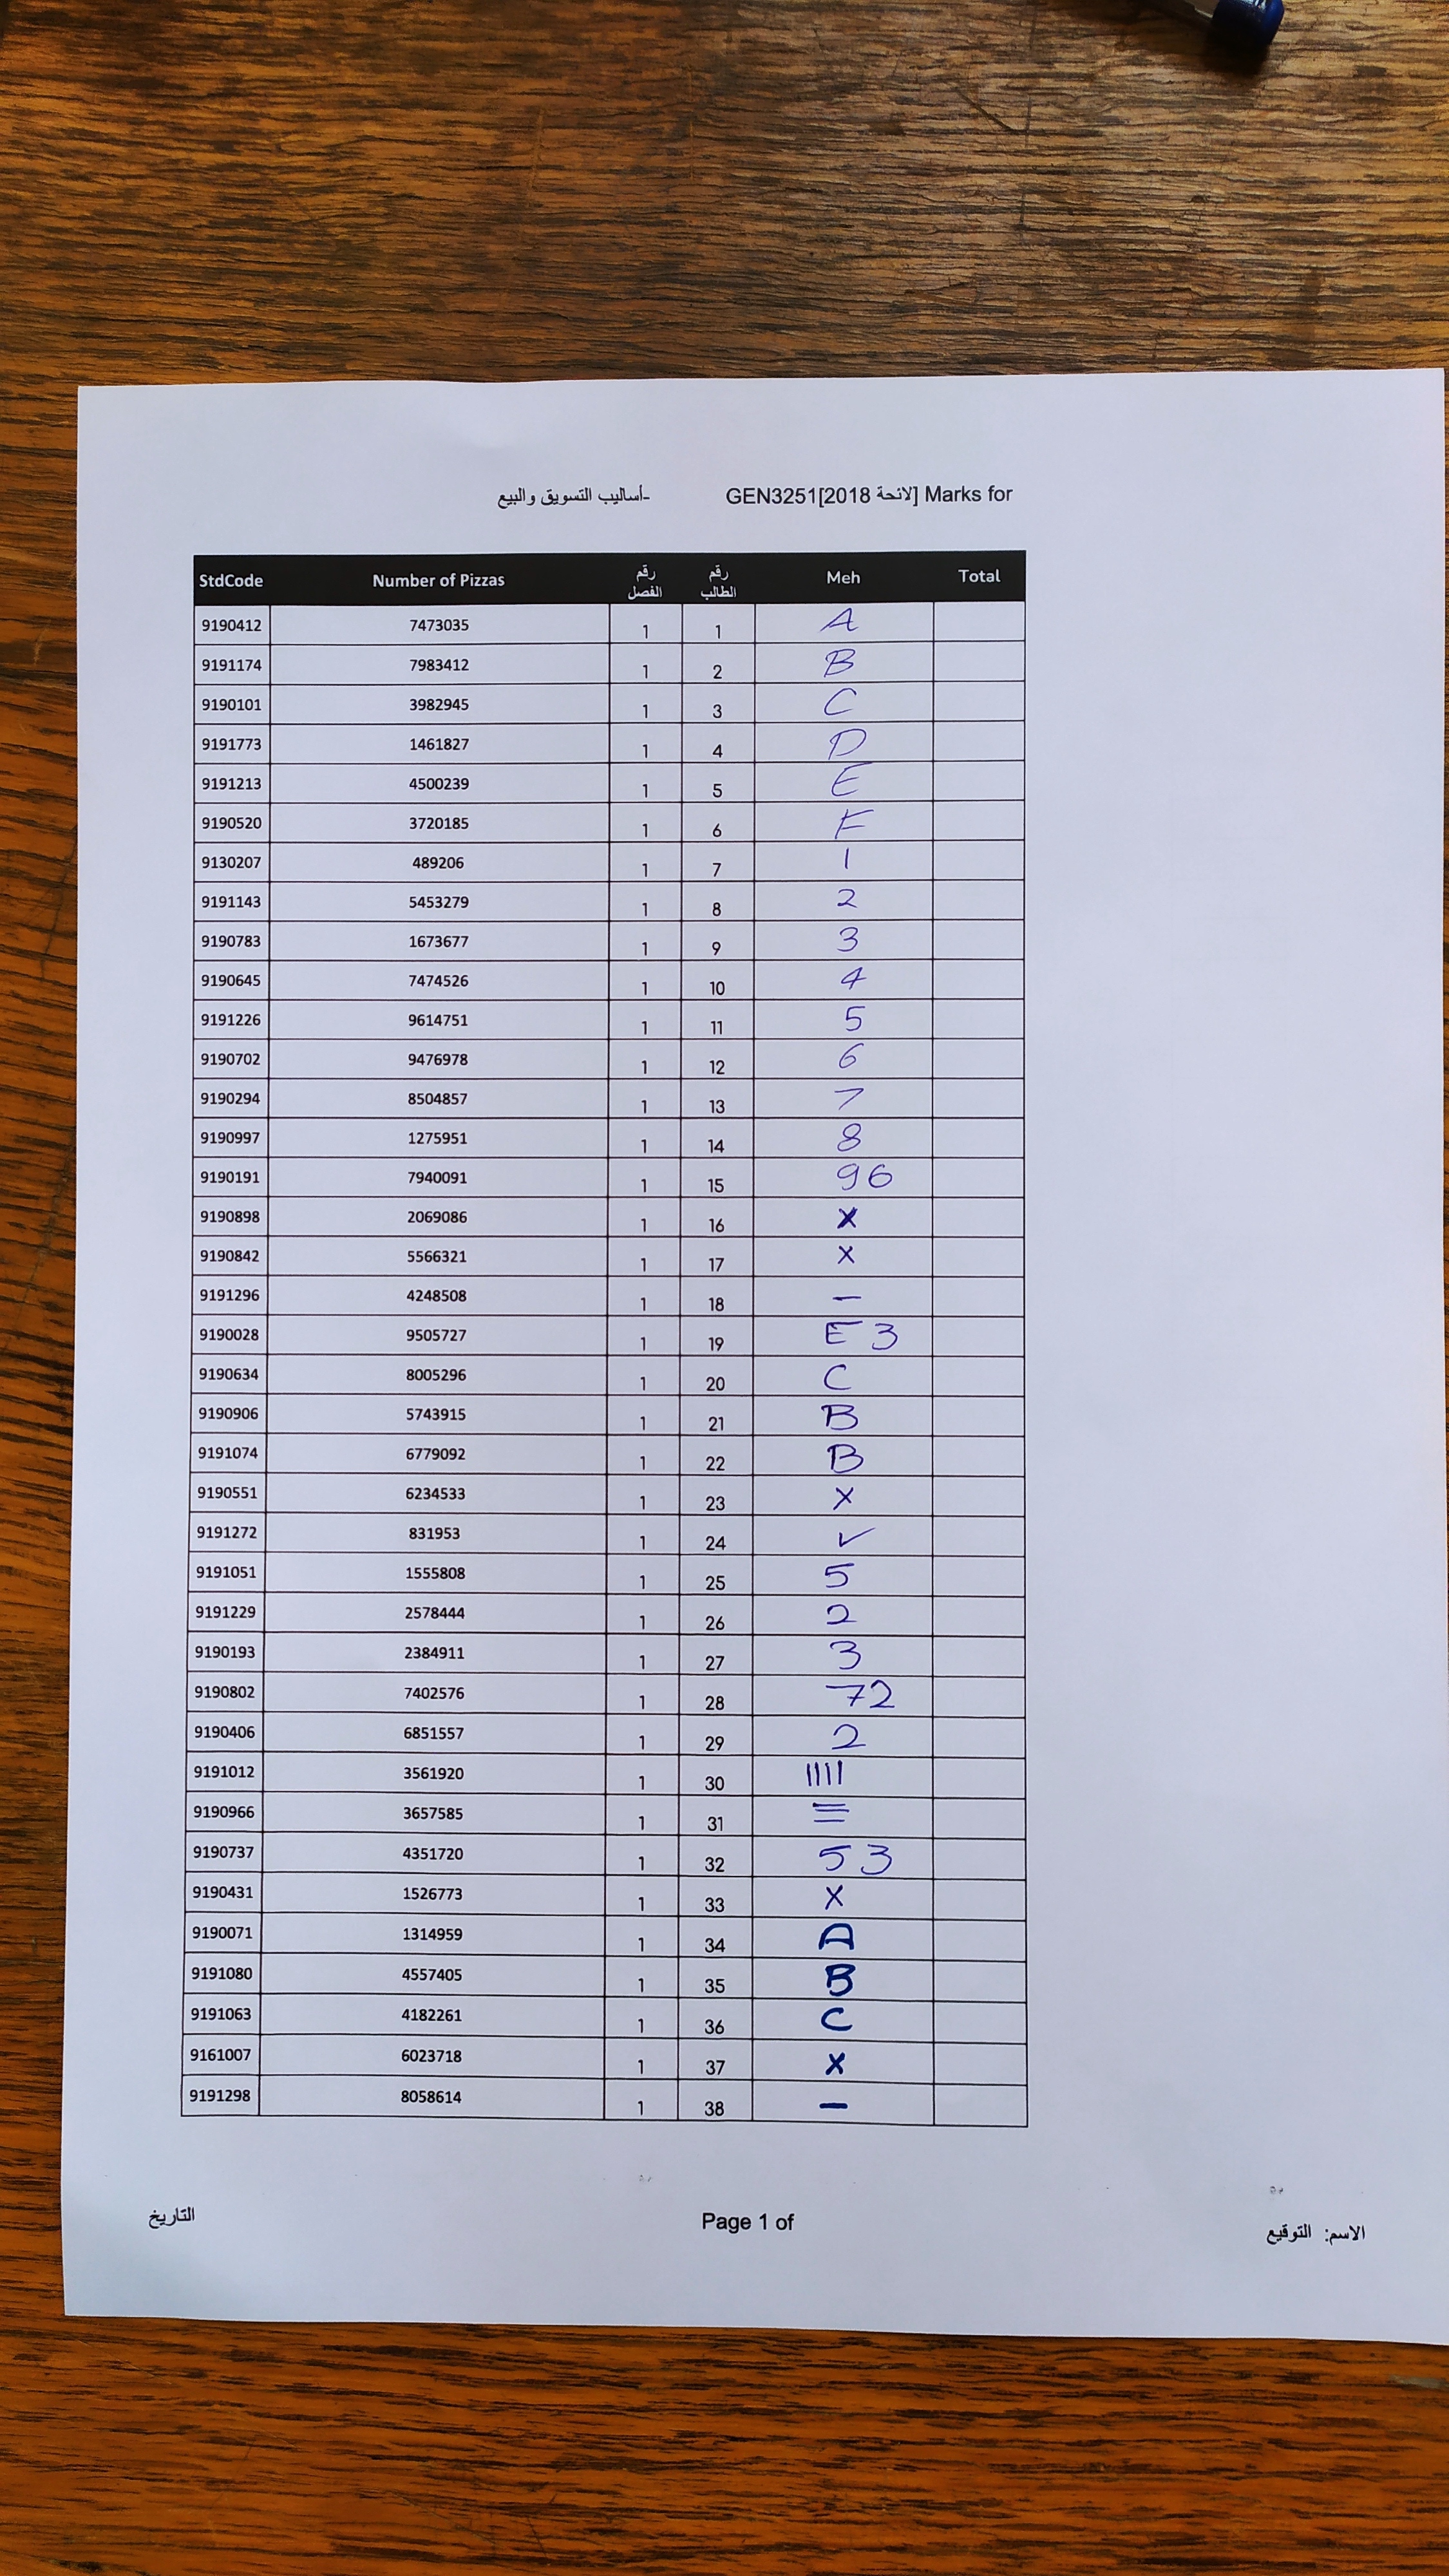 GEN3251[2018 لائحة] Marks for -أساليب التسويق والبيع
StdCode Number of Pizzas رقم الفصل رقم الطالب Meh Total
9190412 7473035 1 1 A
9191174 7983412 1 2 B
9190101 3982945 1 3 C
9191773 1461827 1 4 D
9191213 4500239 1 5 E
9190520 3720185 1 6 F
9130207 489206 1 7 1
9191143 5453279 1 8 2
9190783 1673677 1 9 3
9190645 7474526 1 10 4
9191226 9614751 1 11 5
9190702 9476978 1 12 6
9190294 8504857 1 13 7
9190997 1275951 1 14 8
9190191 7940091 1 15 96
9190898 2069086 1 16 x
9190842 5566321 1 17 x
9191296 4248508 1 18 –
9190028 9505727 1 19 E 3
9190634 8005296 1 20 C
9190906 5743915 1 21 B
9191074 6779092 1 22 B
9190551 6234533 1 23 x
9191272 831953 1 24 ✓
9191051 1555808 1 25 5
9191229 2578444 1 26 2
9190193 2384911 1 27 3
9190802 7402576 1 28 72
9190406 6851557 1 29 2
9191012 3561920 1 30 ||||
9190966 3657585 1 31 ☰
9190737 4351720 1 32 53
9190431 1526773 1 33 x
9190071 1314959 1 34 A
9191080 4557405 1 35 B
9191063 4182261 1 36 C
9161007 6023718 1 37 x
9191298 8058614 1 38 –
التاريخ Page 1 of الاسم: التوقيع